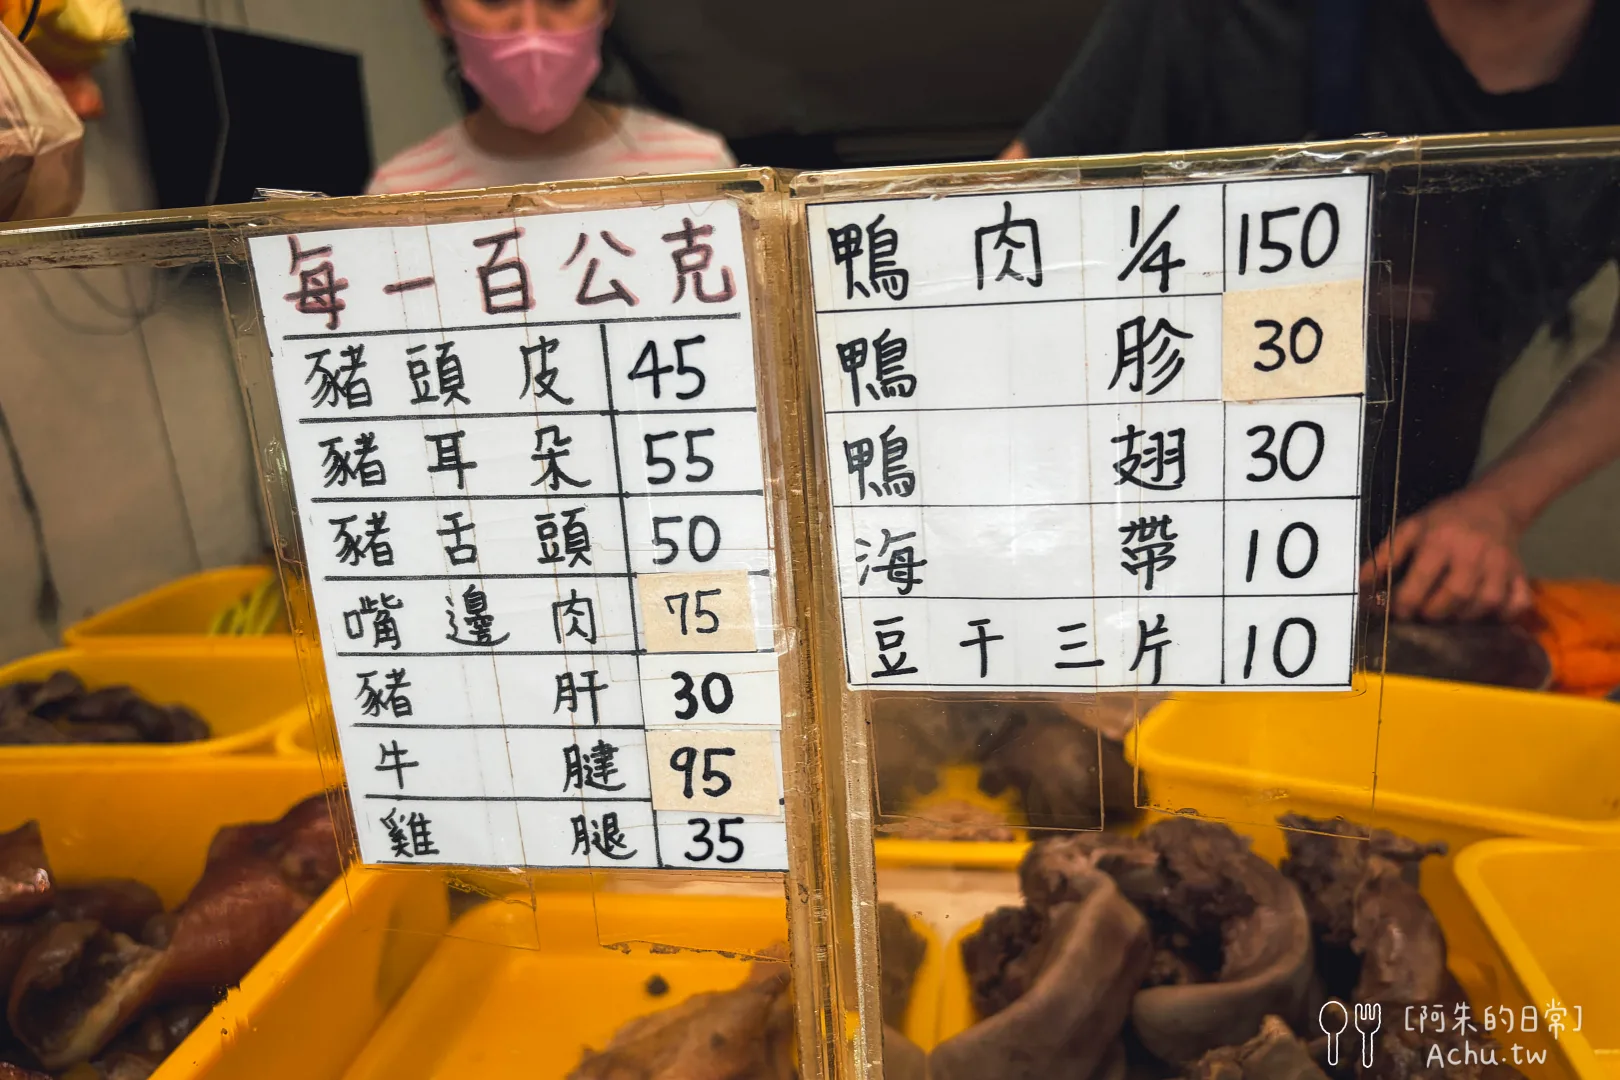 每一百公克
豬頭皮 45
豬耳朵 55
豬舌頭 50
嘴邊肉 75
豬肝 30
牛腱 95
雞腿 35
鴨肉 1/4 150
鴨胗 30
鴨翅 30
海帶 10
豆干三片 10
[阿朱的日常]
Achu.tw